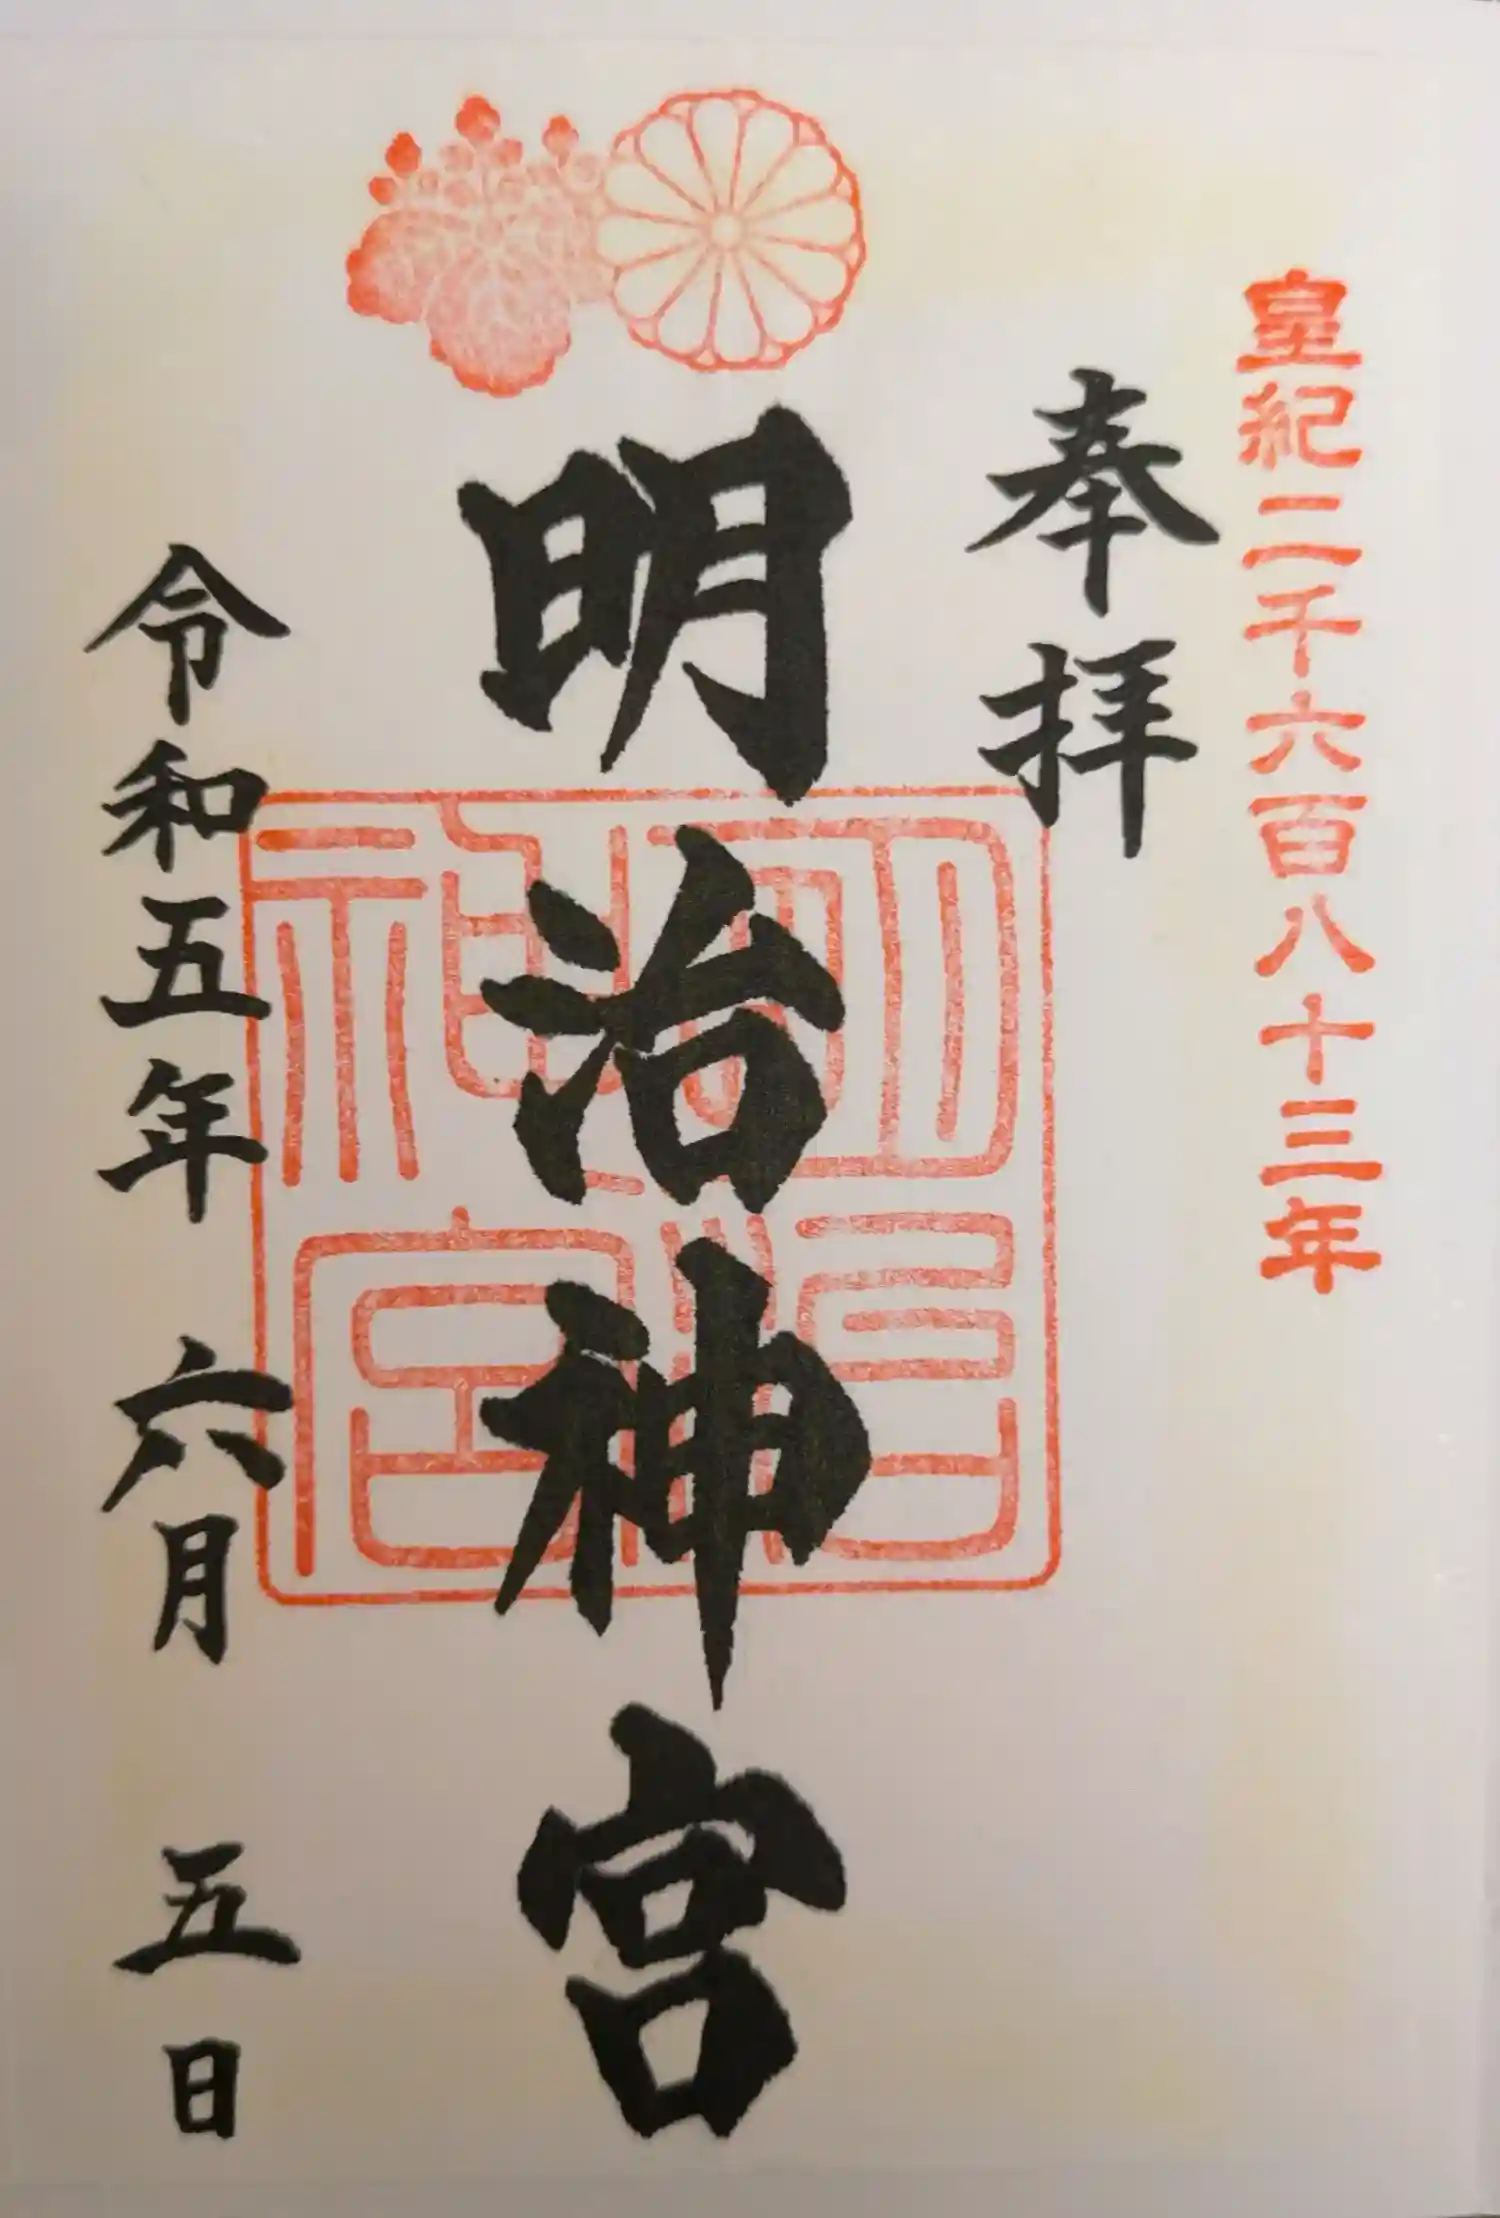 皇紀二千六百八十三年
奉拝
明治神宮
明治神宮
令和五年 六月 五日